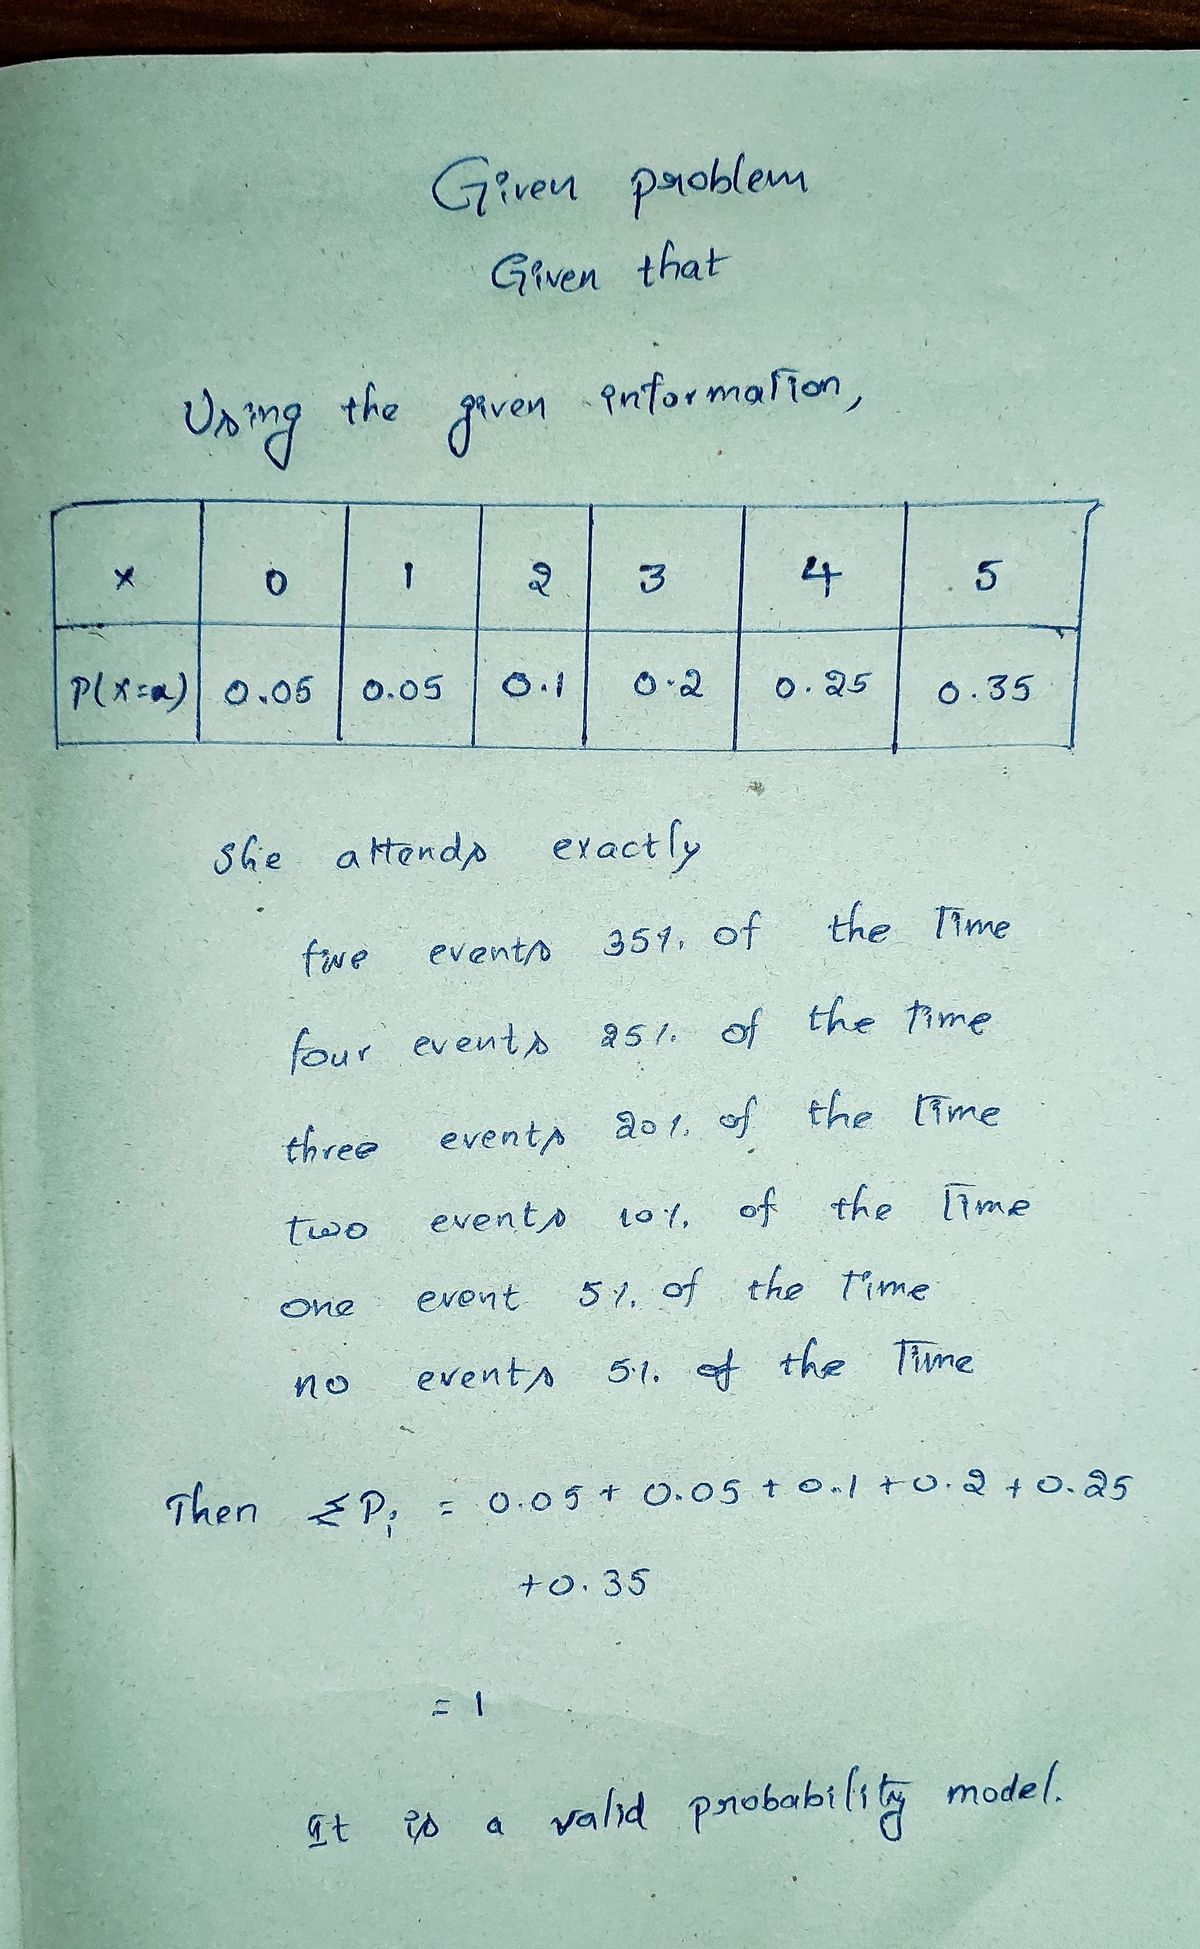 Given problem
Given that
Using the given information,
x 0 1 2 3 4 5
P(X=x) 0.05 0.05 0.1 0.2 0.25 0.35
She attends exactly
five events 35% of the Time
four events 25% of the time
three events 20% of the time
two events 10% of the Time
one event 5% of the Time
no events 5% of the Time
Then ΣPi = 0.05 + 0.05 + 0.1 + 0.2 + 0.25
+0.35
= 1
It is a valid probability model.